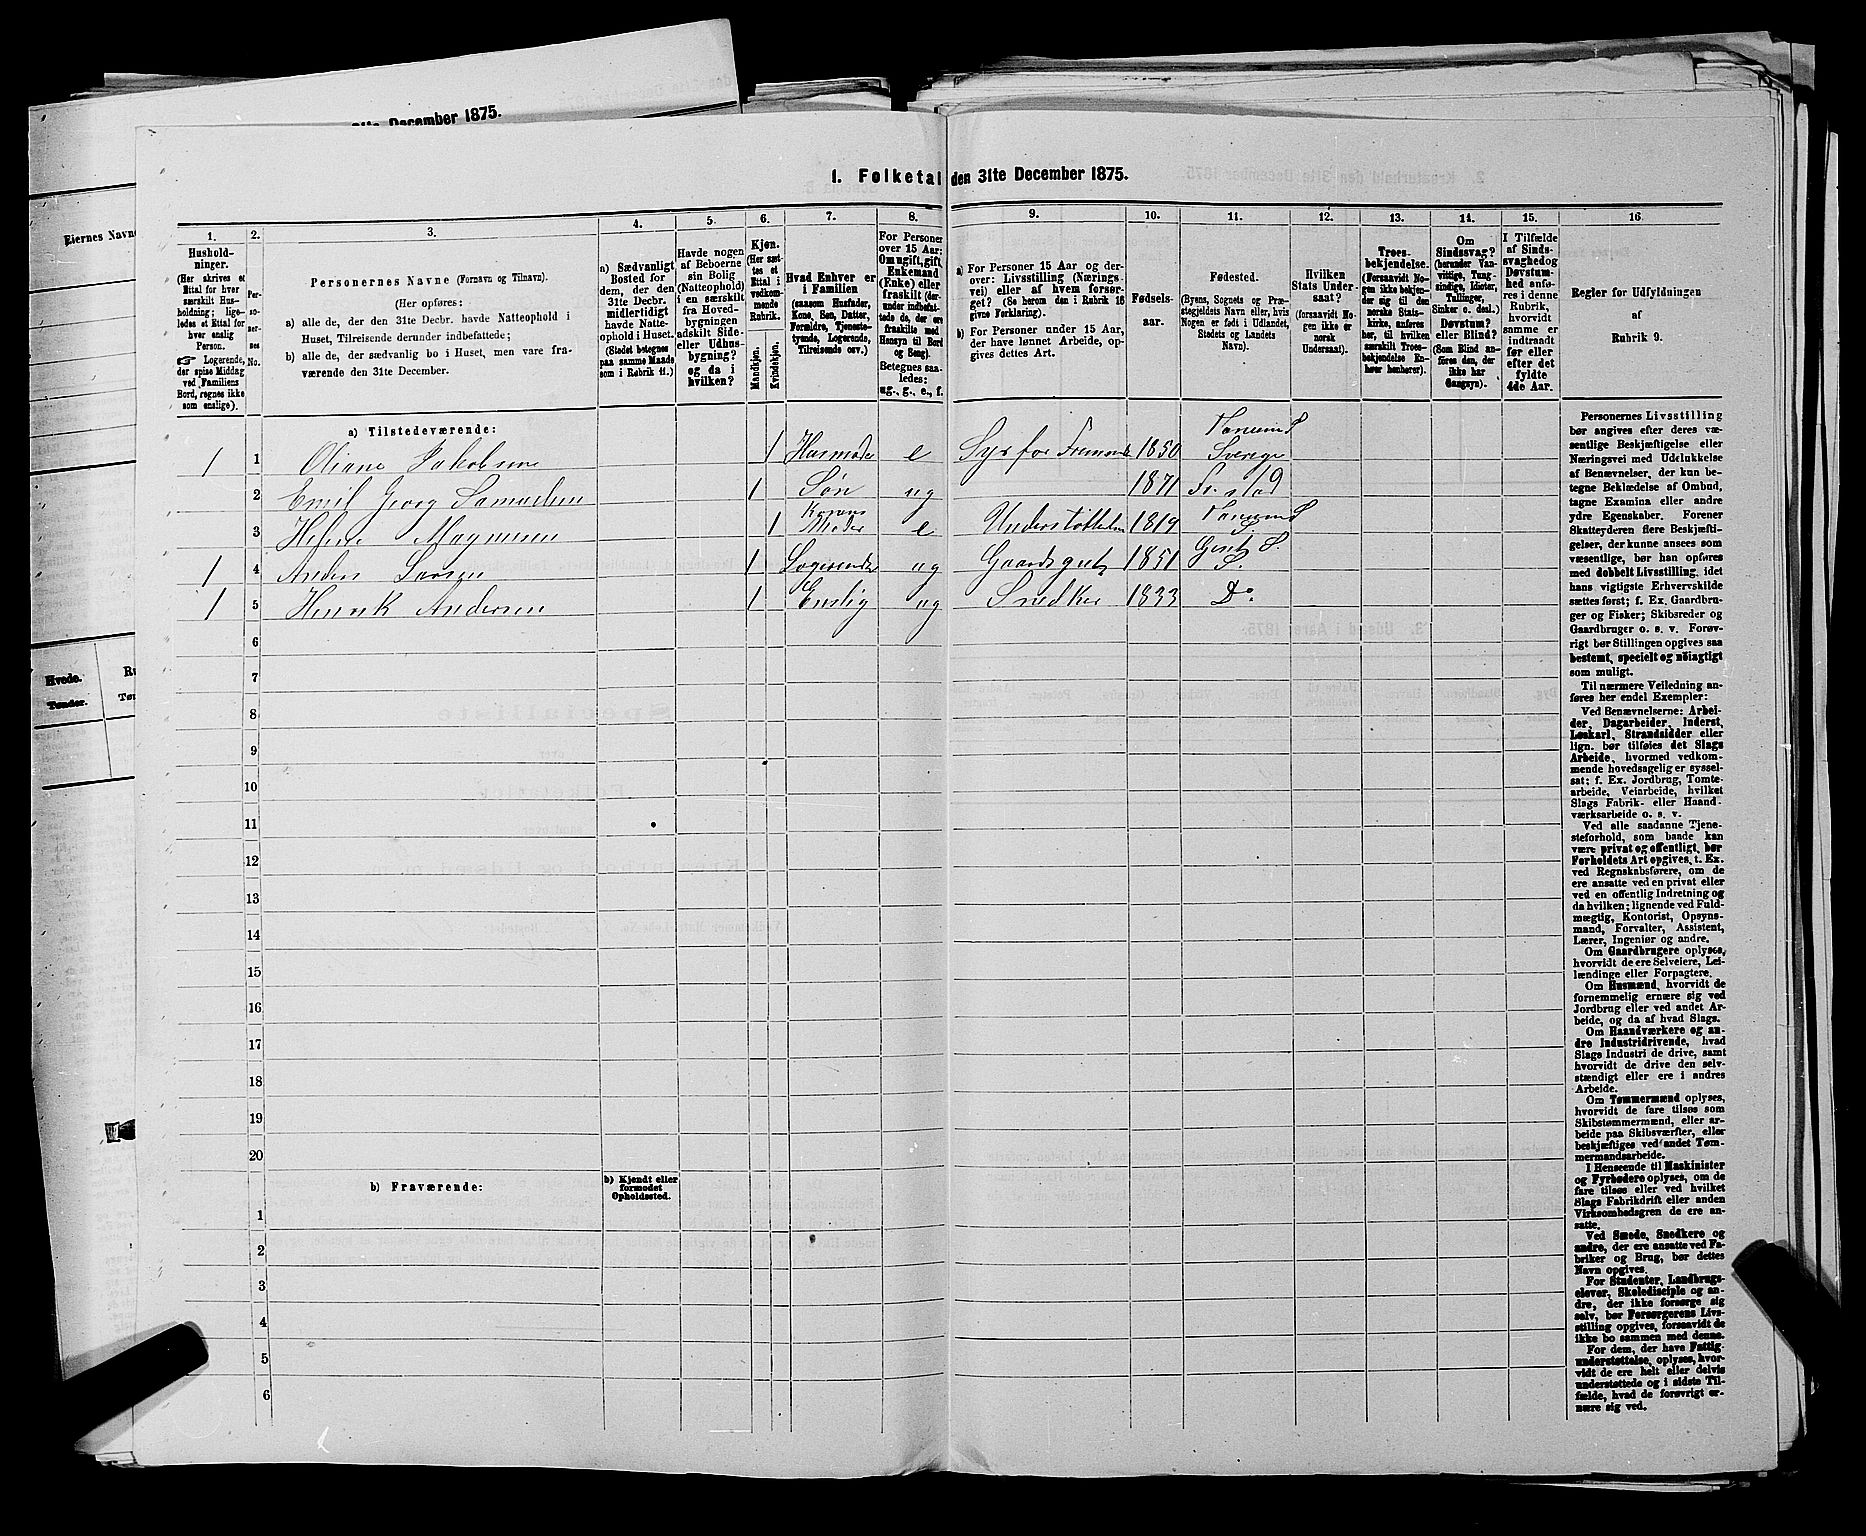 December 1875.
Eiernes Navne
Hvede.
Tønder.
1. Folketal den 31te December 1875.
1.
Hushold-
ninger.
(Her skrives et
Ettal for hver
særskilt Hus-
holdning; lige-
ledes et Ettal for
hver enslig
Person.
☞ Logerende,
der spise Middag
ved Familiens
Bord, regnes ikke
som enslige).
2.
Per-
so-
ner-
nes
No.
3.
Personernes Navne (Fornavn og Tilnavn).
(Her opføres:
a) alle de, der den 31te Decbr. havde Natteophold i
Huset, Tilreisende derunder indbefattede;
b) alle de, der sædvanlig bo i Huset, men vare fra-
værende den 31te December.
4.
a) Sædvanligt
Bosted for
dem, der den
31te Decbr.
midlertidigt
havde Natte-
ophold i Huset.
(Stedet betegnes
paa samme Maade
som i Rubrik 11.)
5.
Havde nogen
af Beboerne
sin Bolig
(Natteophold)
i en særskilt
fra Hoved-
bygningen
adskilt Side-
eller Udhus-
bygning?
og da i
hvilken?
6.
Kjøn.
(Her sæt-
tes et
Ettal i
vedkom-
mende
Rubrik.
Mandkjøn.
Kvindekjøn.
7.
Hvad Enhver er
i Familien
(saasom Husfader,
Kone, Søn, Datter,
Forældre, Tjeneste-
tyende, Logerende,
Tilreisende osv.)
8.
For Personer
over 15 Aar:
Om ugift, gift,
Enkemand
(Enke) eller
fraskilt (der-
under indbefat-
tede de, der ere
fraskilte med
Hensyn til Bord
og Seng).
Betegnes saa-
ledes:
ug., g., e., f.
9.
a) For Personer 15 Aar og der-
over: Livsstilling (Nærings-
vei) eller af hvem forsør-
get? (Se herom den i Rubrik 16
givne Forklaring).
b) For Personer under 15 Aar,
der have lønnet Arbeide, op-
gives dettes Art.
10.
Fødsels-
aar.
11.
Fødested.
(Byens, Sognets og Præ-
stegjeldets Navn eller, hvis
Nogen er født i Udlandet,
Stedets og Landets
Navn).
12.
Hvilken
Stats Under-
saat?
(forsaavidt No-
gen ikke er
norsk
Undersaat).
13.
Troes-
bekjendelse.
(Forsaavidt No-
gen ikke bekjen-
der sig til den
norske Stats-
kirke, anføres
her, til hvilken
særskilt Troes-
bekjendelse En-
hver henhører).
14.
Om
Sindssvag?
(herunder Van-
vittige, Tung-
sindige, Idioter,
Tullinger,
Sinker o. desl.)
Døvstum?
eller Blind?
(Som Blind an-
føres den, der
ikke har
Gangsyn).
15.
I Tilfælde
af Sinds-
svaghed og
Døvstum-
hed anfø-
res i denne
Rubrik,
hvorvidt
samme er
indtraadt
før eller
efter det
fyldte
4de Aar.
16.
Regler for Udfyldningen
af
Rubrik 9.
a) Tilstedeværende:
1 1 Oliane Jakobsen 1 Husmoder e Syr for Fremmede 1850 Sverige
2 Emil Georg Samuelsen 1 Søn ug 1871 Fr. stad
3 Helene Magnusen 1 Konens Moder e Understøttelse 1819
1 4 Anders Larsen 1 Logerende ug Gaardsgut 1851
1 5 Henrik Andersen 1 Enslig ug Snedker 1833 Do.
6
7
8
9
10
11
12
13
14
15
16
17
18
19
20
b) Fraværende:
b) Kjendt eller
formodet
Opholdssted.
1
2
3
4
5
6
Personernes Livsstilling
bør angives efter deres væ-
sentlige Beskjæftigelse eller
Næringsvei med Udelukkelse
af Benævnelser, der kun be-
tegne Beklædelse af Ombud,
tagne Examina eller andre
ydre Egenskaber. Forener
Skatteyderen flere Beskjæfti-
gelser, der kunne ansees som
væsentlige, bør han opføres
med dobbelt Livsstilling, idet
hans vigtigste Erhvervskilde
sættes først; f. Ex. Gaardbru-
ger og Fisker; Skibsreder og
Gaardbruger o. s. v. Forøv-
rigt bør Stillingen opgives saa
bestemt, specielt og nøiagtigt
som muligt.
Til nærmere Veiledning an-
føres her endel Exempler:
Ved Benævnelserne: Arbei-
der, Dagarbeider, Inderst,
Løskarl, Strandsidder eller
lign. bør tilføies det Slags
Arbeide, hvormed vedkom-
mende hovedsagelig er syssel-
sat; f. Ex. Jordbrug, Tomte-
arbeide, Veiarbeide, hvilket
Slags Fabrik- eller Haand-
værksarbeide o. s. v.
Ved alle saadanne Tjene-
steforhold, som baade kan
være privat og offentligt, bør
Forholdets Art opgives, t. Ex.
ved Regnskabsførere, om de
ere ansatte ved en privat eller
ved en offentlig Indretning og
da hvilken; lignende ved Fuld-
mægtig, Kontorist, Opsyns-
mand, Forvalter, Assistent,
Lærer, Ingeniør og andre.
Om Gaardbrugere oplyses,
hvorvidt de ere Selveiere, Lei-
lændinge eller Forpagtere.
Om Husmænd, hvorvidt de
fornemmelig ernære sig ved
Jordbrug eller ved andet Ar-
beide, og da af hvad Slags.
Om Haandværkere og an-
dre Industridrivende, hvad
Slags Industri de drive, samt
hvorvidt de drive den selv-
stændigt eller ere i andres
Arbeide.
Om Tømmermænd oplyses,
hvorvidt de fare tilsøs som
Skibstømmermænd, eller ar-
beide paa Skibsværfter, eller
beskjæftiges ved andet Tøm-
mermandsarbeide.
I Henseende til Maskinister
og Fyrbødere oplyses, om de
fare tilsøs eller ved hvilket
Slags Fabrikdrift eller anden
Virksomhedsgren de ere an-
satte.
Ved Smede, Snedkere og
andre, der ere ansatte ved Fa-
briker og Brug, bør dettes
Navn opgives.
For Studenter, Landbrugs-
elever, Skoledisciple og an-
dre, der ikke forsørge sig
selv, bør Forsørgerens Livs-
stilling opgives, forsaavidt de
ikke bo sammen med denne.
For dem, der have Fattig-
understøttelse, oplyses, hvor-
vidt de ere helt eller delvis
understøttede og i sidste Til-
fælde, hvad de forøvrigt er-
nære sig ved.